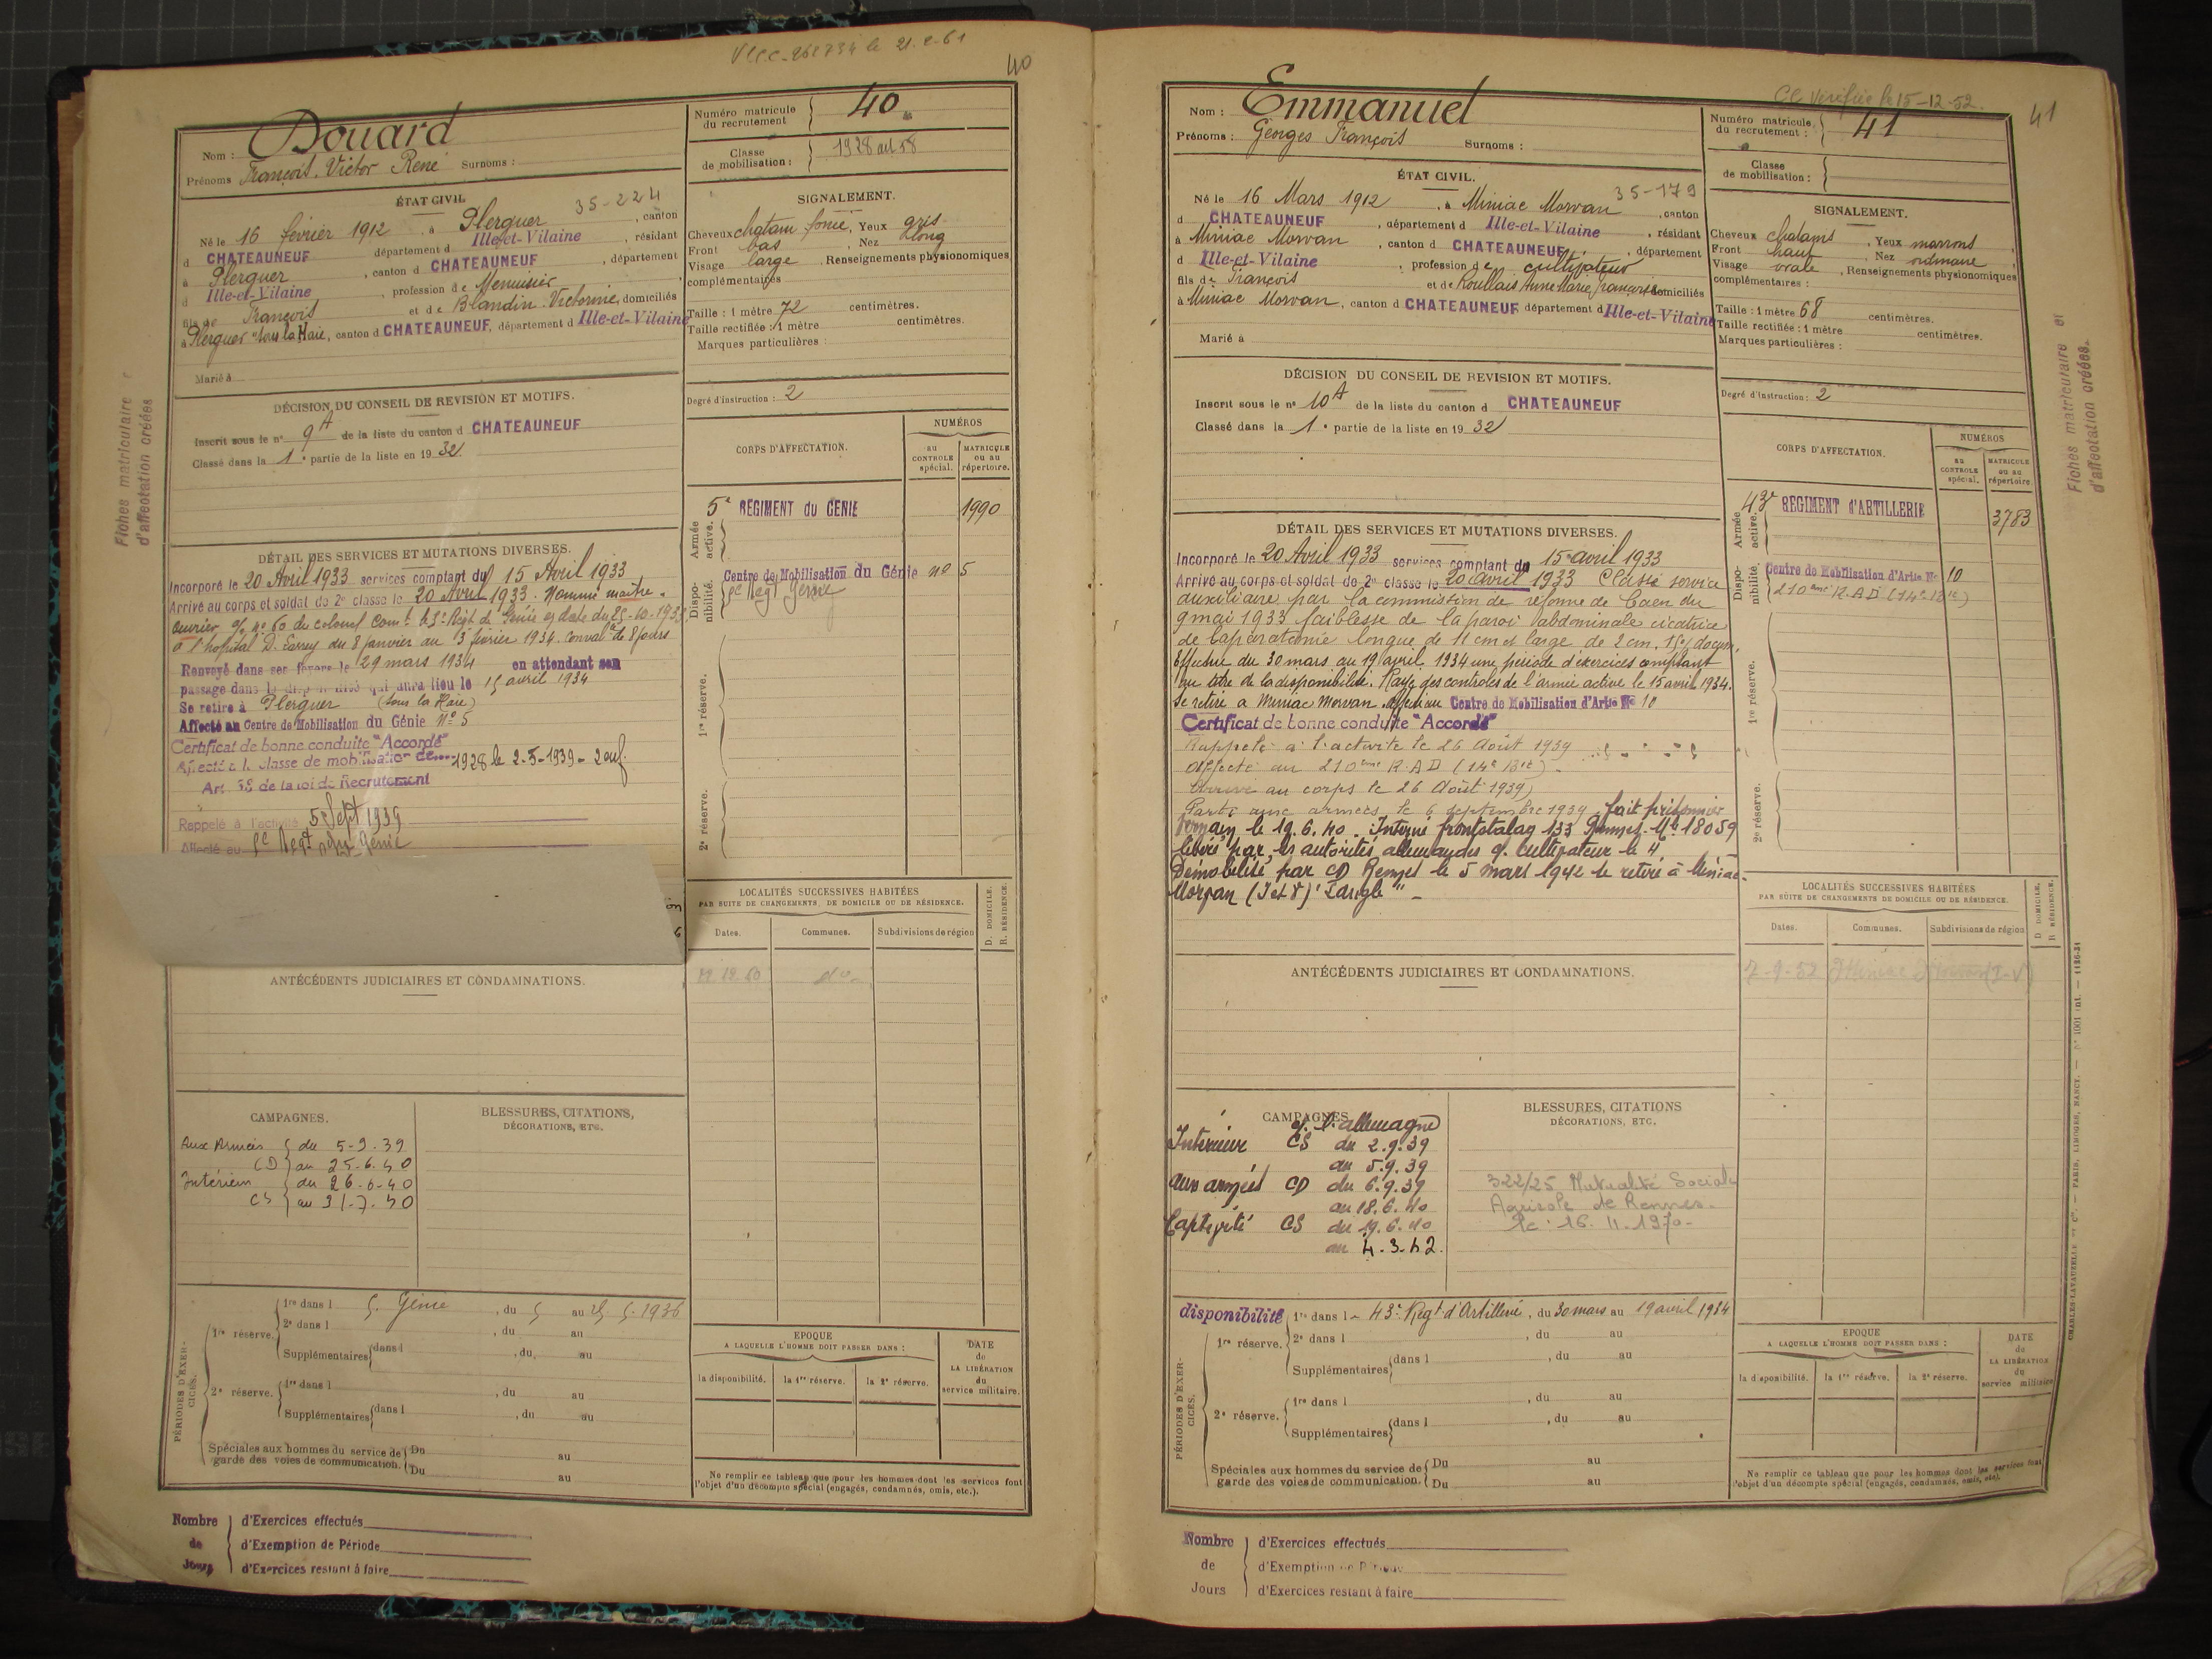 40
Nom : Douard
Prénoms François. Victor René Surnoms :
Numéro matricule du recrutement 40
Classe de mobilisation : 1928
ÉTAT CIVIL
35-224
Né le 16 février 1912, à Plerguer, canton
d CHATEAUNEUF département d Ille-et-Vilaine, résidant
à Plerguer, canton d CHATEAUNEUF, département
d Ille-et-Vilaine, profession de Menuisier
fils de François et de Blandin Victorine, domiciliés
à Plerguer "sous la Haie, canton d CHATEAUNEUF, département d Ille-et-Vilaine
Marié à
SIGNALEMENT.
Cheveux chatain foncé, Yeux gris
Front bas, Nez long
Visage large, Renseignements physionomiques
complémentaires
Taille : 1 mètre 72 centimètres.
Taille rectifiée : 1 mètre centimètres.
Marques particulières :
Degré d'instruction : 2
DÉCISION DU CONSEIL DE REVISION ET MOTIFS.
Inscrit sous le nº 9A de la liste du canton d CHATEAUNEUF
Classé dans la 1e partie de la liste en 1932
CORPS D'AFFECTATION.
NUMÉROS
AU CONTROLE spécial.
MATRICULE OU AU répertoire.
Armée active.
5e REGIMENT du GENIE 1990
Disponibilité.
Centre de Mobilisation du Génie nº 5
Regt Génie
1re réserve.
2e réserve.
Fiches matriculaire
d'affectation créées
DÉTAIL DES SERVICES ET MUTATIONS DIVERSES.
Incorporé le 20 Avril 1933 services comptant du 15 Avril 1933
Arrivé au corps et soldat de 2e classe le 20 Avril 1933. Nommé maitre
ouvrier nº 60 du colonel comt le 5e Régt de Génie en date du 25-10-1933
à l'hopital D. Larrey du 8 janvier au 3 février 1934. conval de 8 jours
Renvoyé dans ses foyers le 29 mars 1934 en attendant son
passage dans la disponibilité qui aura lieu le 15 avril 1934
Se retire à Plerguer (sous la Haie)
Affecté au Centre de Mobilisation du Génie Nº 5
Certificat de bonne conduite "Accordé"
Affecté à la classe de mobilisation de 1928 le 2-5-1939 - 2 enf.
Art 58 de la loi de Recrutement
Rappelé à l'activité 5 Sept 1939
Affecté au Regt du Génie
LOCALITÉS SUCCESSIVES HABITÉES
PAR SUITE DE CHANGEMENTS DE DOMICILE OU DE RÉSIDENCE.
D. DOMICILE.
R. RÉSIDENCE.
Dates. Communes. Subdivisions de région
12.12.60
ANTÉCÉDENTS JUDICIAIRES ET CONDAMNATIONS.
CAMPAGNES.
Aux Armées du 5-9-39
CD au 25-6-40
Intérieur du 26-6-40
CS au 31-7-40
BLESSURES, CITATIONS,
DÉCORATIONS, ETC.
PÉRIODES D'EXERCICES.
1re réserve. 1re dans l 5. Génie, du 5 au 25 5. 1936
2e dans l, du au
Supplémentaires dans l, du au
2e réserve. 1re dans l, du au
Supplémentaires dans l, du au
Spéciales aux hommes du service de garde des voies de communication. Du au
Du au
EPOQUE
A LAQUELLE L'HOMME DOIT PASSER DANS :
la disponibilité. la 1re réserve. la 2e réserve.
DATE de LA LIBÉRATION du service militaire.
Ne remplir ce tableau que pour les hommes dont les services font
l'objet d'un décompte spécial (engagés, condamnés, omis, etc.).
Nombre de Jours
d'Exercices effectués
d'Exemption de Période
d'Exercices restant à faire
Cl Vérifiée le 15-12-52.
41
Nom : Emmanuel
Prénoms : Georges François Surnoms :
Numéro matricule du recrutement : 41
Classe de mobilisation :
ÉTAT CIVIL.
35-179
Né le 16 Mars 1912, à Miniac Morvan, canton
d CHATEAUNEUF, département d Ille-et-Vilaine, résidant
à Miniac Morvan, canton d CHATEAUNEUF, département
d Ille-et-Vilaine, profession de cultivateur
fils de François et de Roullais Anne Marie Françoise domiciliés
à Miniac Morvan, canton d CHATEAUNEUF département d Ille-et-Vilaine
Marié à
SIGNALEMENT.
Cheveux chatains, Yeux marrons
Front haut, Nez ordinaire
Visage ovale, Renseignements physionomiques
complémentaires :
Taille : 1 mètre 68 centimètres.
Taille rectifiée : 1 mètre centimètres.
Marques particulières :
Degré d'instruction : 2
DÉCISION DU CONSEIL DE REVISION ET MOTIFS.
Inscrit sous le nº 10A de la liste du canton d CHATEAUNEUF
Classé dans la 1e partie de la liste en 1932
CORPS D'AFFECTATION.
NUMÉROS
AU CONTROLE spécial.
MATRICULE OU AU répertoire
Armée active.
43e REGIMENT d'ARTILLERIE 3783
Disponibilité.
Centre de Mobilisation d'Artie Nº 10
210ème R.A.D (14e Bie)
1re réserve.
2e réserve.
Fiches matriculaire et
d'affectation créées.
DÉTAIL DES SERVICES ET MUTATIONS DIVERSES.
Incorporé le 20 Avril 1933 services comptant du 15 avril 1933
Arrivé au corps et soldat de 2e classe le 20 avril 1933 Classé service
auxiliaire par la commission de réforme de Caen du
9 mai 1933 faiblesse de la paroi abdominale cicatrice
de laparatomie longue de 11 cm et large de 2 cm.
Effectué du 30 mars au 19 avril 1934 une période d'exercices comptant
au titre de la disponibilité. Rayé des controles de l'armée active le 15 avril 1934.
Se retire à Miniac Morvan. Affecté au Centre de Mobilisation d'Artie Nº 10
Certificat de bonne conduite "Accordé"
Rappelé à l'activité le 26 Août 1939
affecté au 210ème R.A.D (14e Bie)
Arrivé au corps le 26 Août 1939
Parti aux armées le 6 septembre 1939 fait prisonnier
le 19.6.40. Interné frontstalag 133 Rennes. Mle 18059
libéré par les autorités allemandes q. cultivateur le 4
Démobilisé par CD Rennes le 5 mars 1942 se retire à Miniac
Morvan (I et V)
LOCALITÉS SUCCESSIVES HABITÉES
PAR SUITE DE CHANGEMENTS DE DOMICILE OU DE RÉSIDENCE.
D DOMICILE.
R RÉSIDENCE.
Dates. Communes. Subdivisions de région
7-9-52 Miniac Morvan (I-V)
ANTÉCÉDENTS JUDICIAIRES ET CONDAMNATIONS.
CAMPAGNES
c/ l'allemagne
Intérieur CS du 2.9.39
au 5.9.39
aux armées CD du 6.9.39
au 18.6.40
Captivité CS du 19.6.40
au 4.3.42.
BLESSURES, CITATIONS
DÉCORATIONS, ETC.
322/25 Mutualité Sociale
Agricole de Rennes.
le : 16.11.1970-
PÉRIODES D'EXERCICES.
disponibilité 1re dans l 43e Régt d'Artillerie, du 30 mars au 19 avril 1934
1re réserve. 2e dans l, du au
Supplémentaires dans l, du au
2e réserve. 1re dans l, du au
Supplémentaires dans l, du au
Spéciales aux hommes du service de garde des voies de communication. Du au
Du au
EPOQUE
A LAQUELLE L'HOMME DOIT PASSER DANS :
la disponibilité. la 1re réserve. la 2e réserve.
DATE de LA LIBÉRATION du service militaire
Ne remplir ce tableau que pour les hommes dont les services font
l'objet d'un décompte spécial (engagés, condamnés, omis, etc.).
CHARLES-LAVAUZELLE ET Cie. — PARIS, LIMOGES, NANCY. — Nº 1001 int. — 1126-31
Nombre de Jours
d'Exercices effectués
d'Exemption de Période
d'Exercices restant à faire